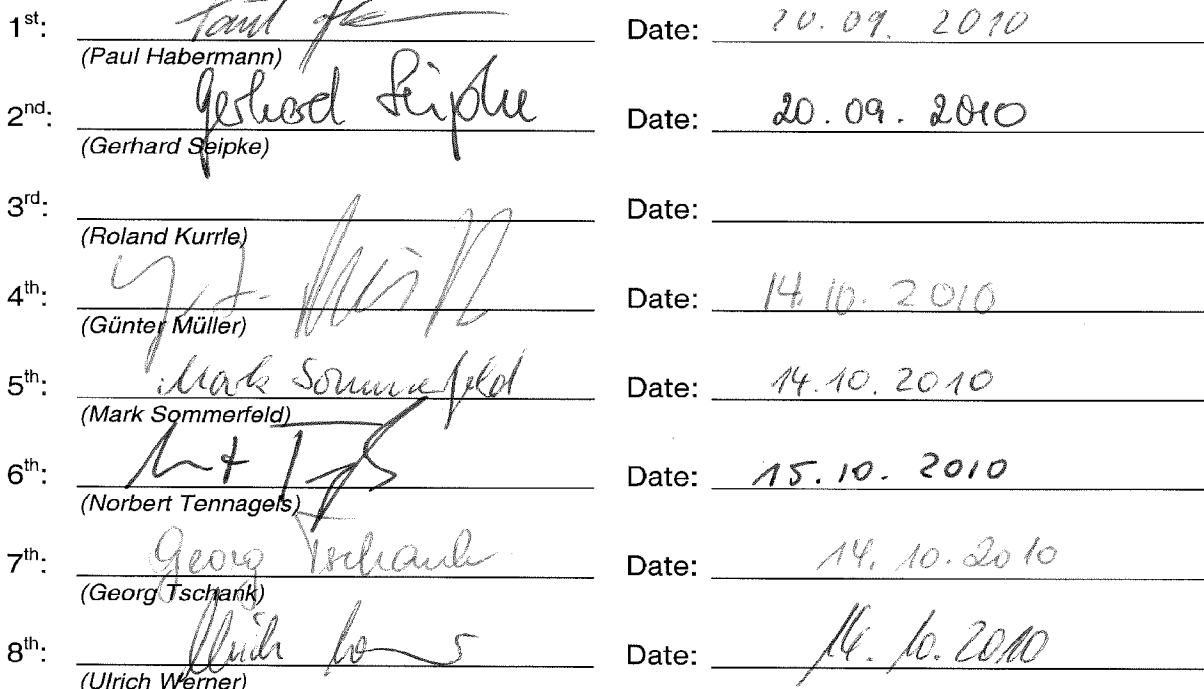 1st: Paul Date: 20.09. 2010
(Paul Habermann)
2nd: Gerhard Seipke Date: 20.09. 2010
(Gerhard Seipke)
3rd: Date:
(Roland Kurrle)
4th: Date: 14.10. 2010
(Günter Müller)
5th: Mark Sommerfeld Date: 14.10. 2010
(Mark Sommerfeld)
6th: Date: 15.10. 2010
(Norbert Tennagels)
7th: Georg Tschank Date: 14.10.2010
(Georg Tschank)
8th: Ulrich Date: 14.10.2010
(Ulrich Werner)